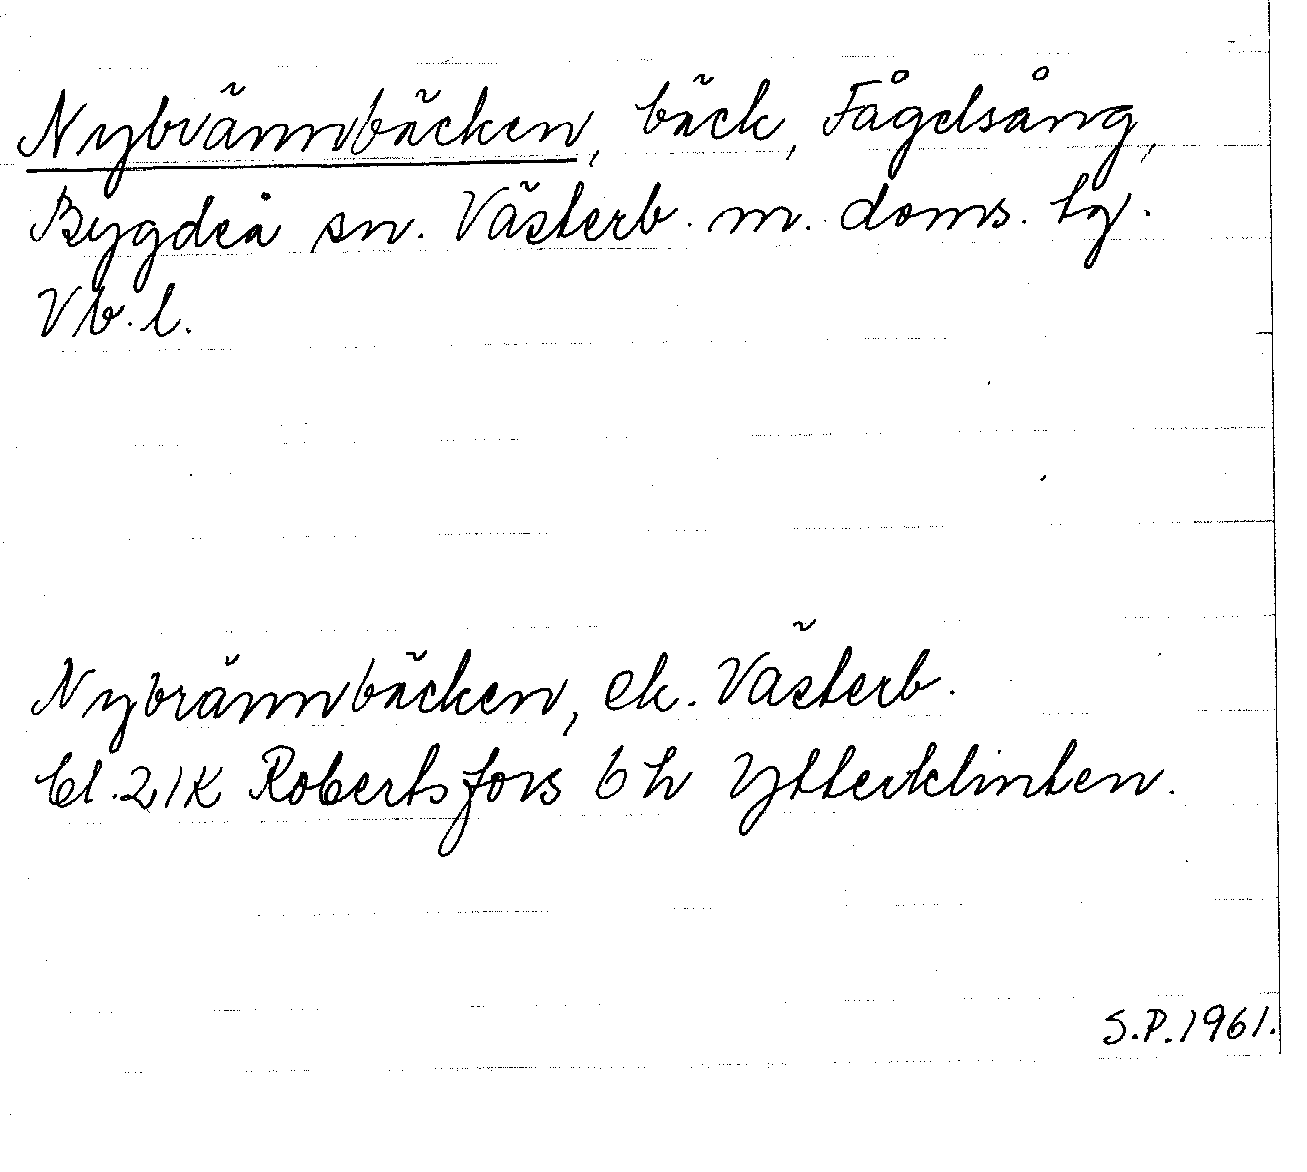 Nybrännbäcken, bäck, Fågelsång,
Bygdeå sn. Västerb. m. doms. tg.
Vb. l.
Nybrännbäcken, ek. Västerb.
bl. 21K Robertsfors 6 h Ytterklinten.
S.P. 1961.